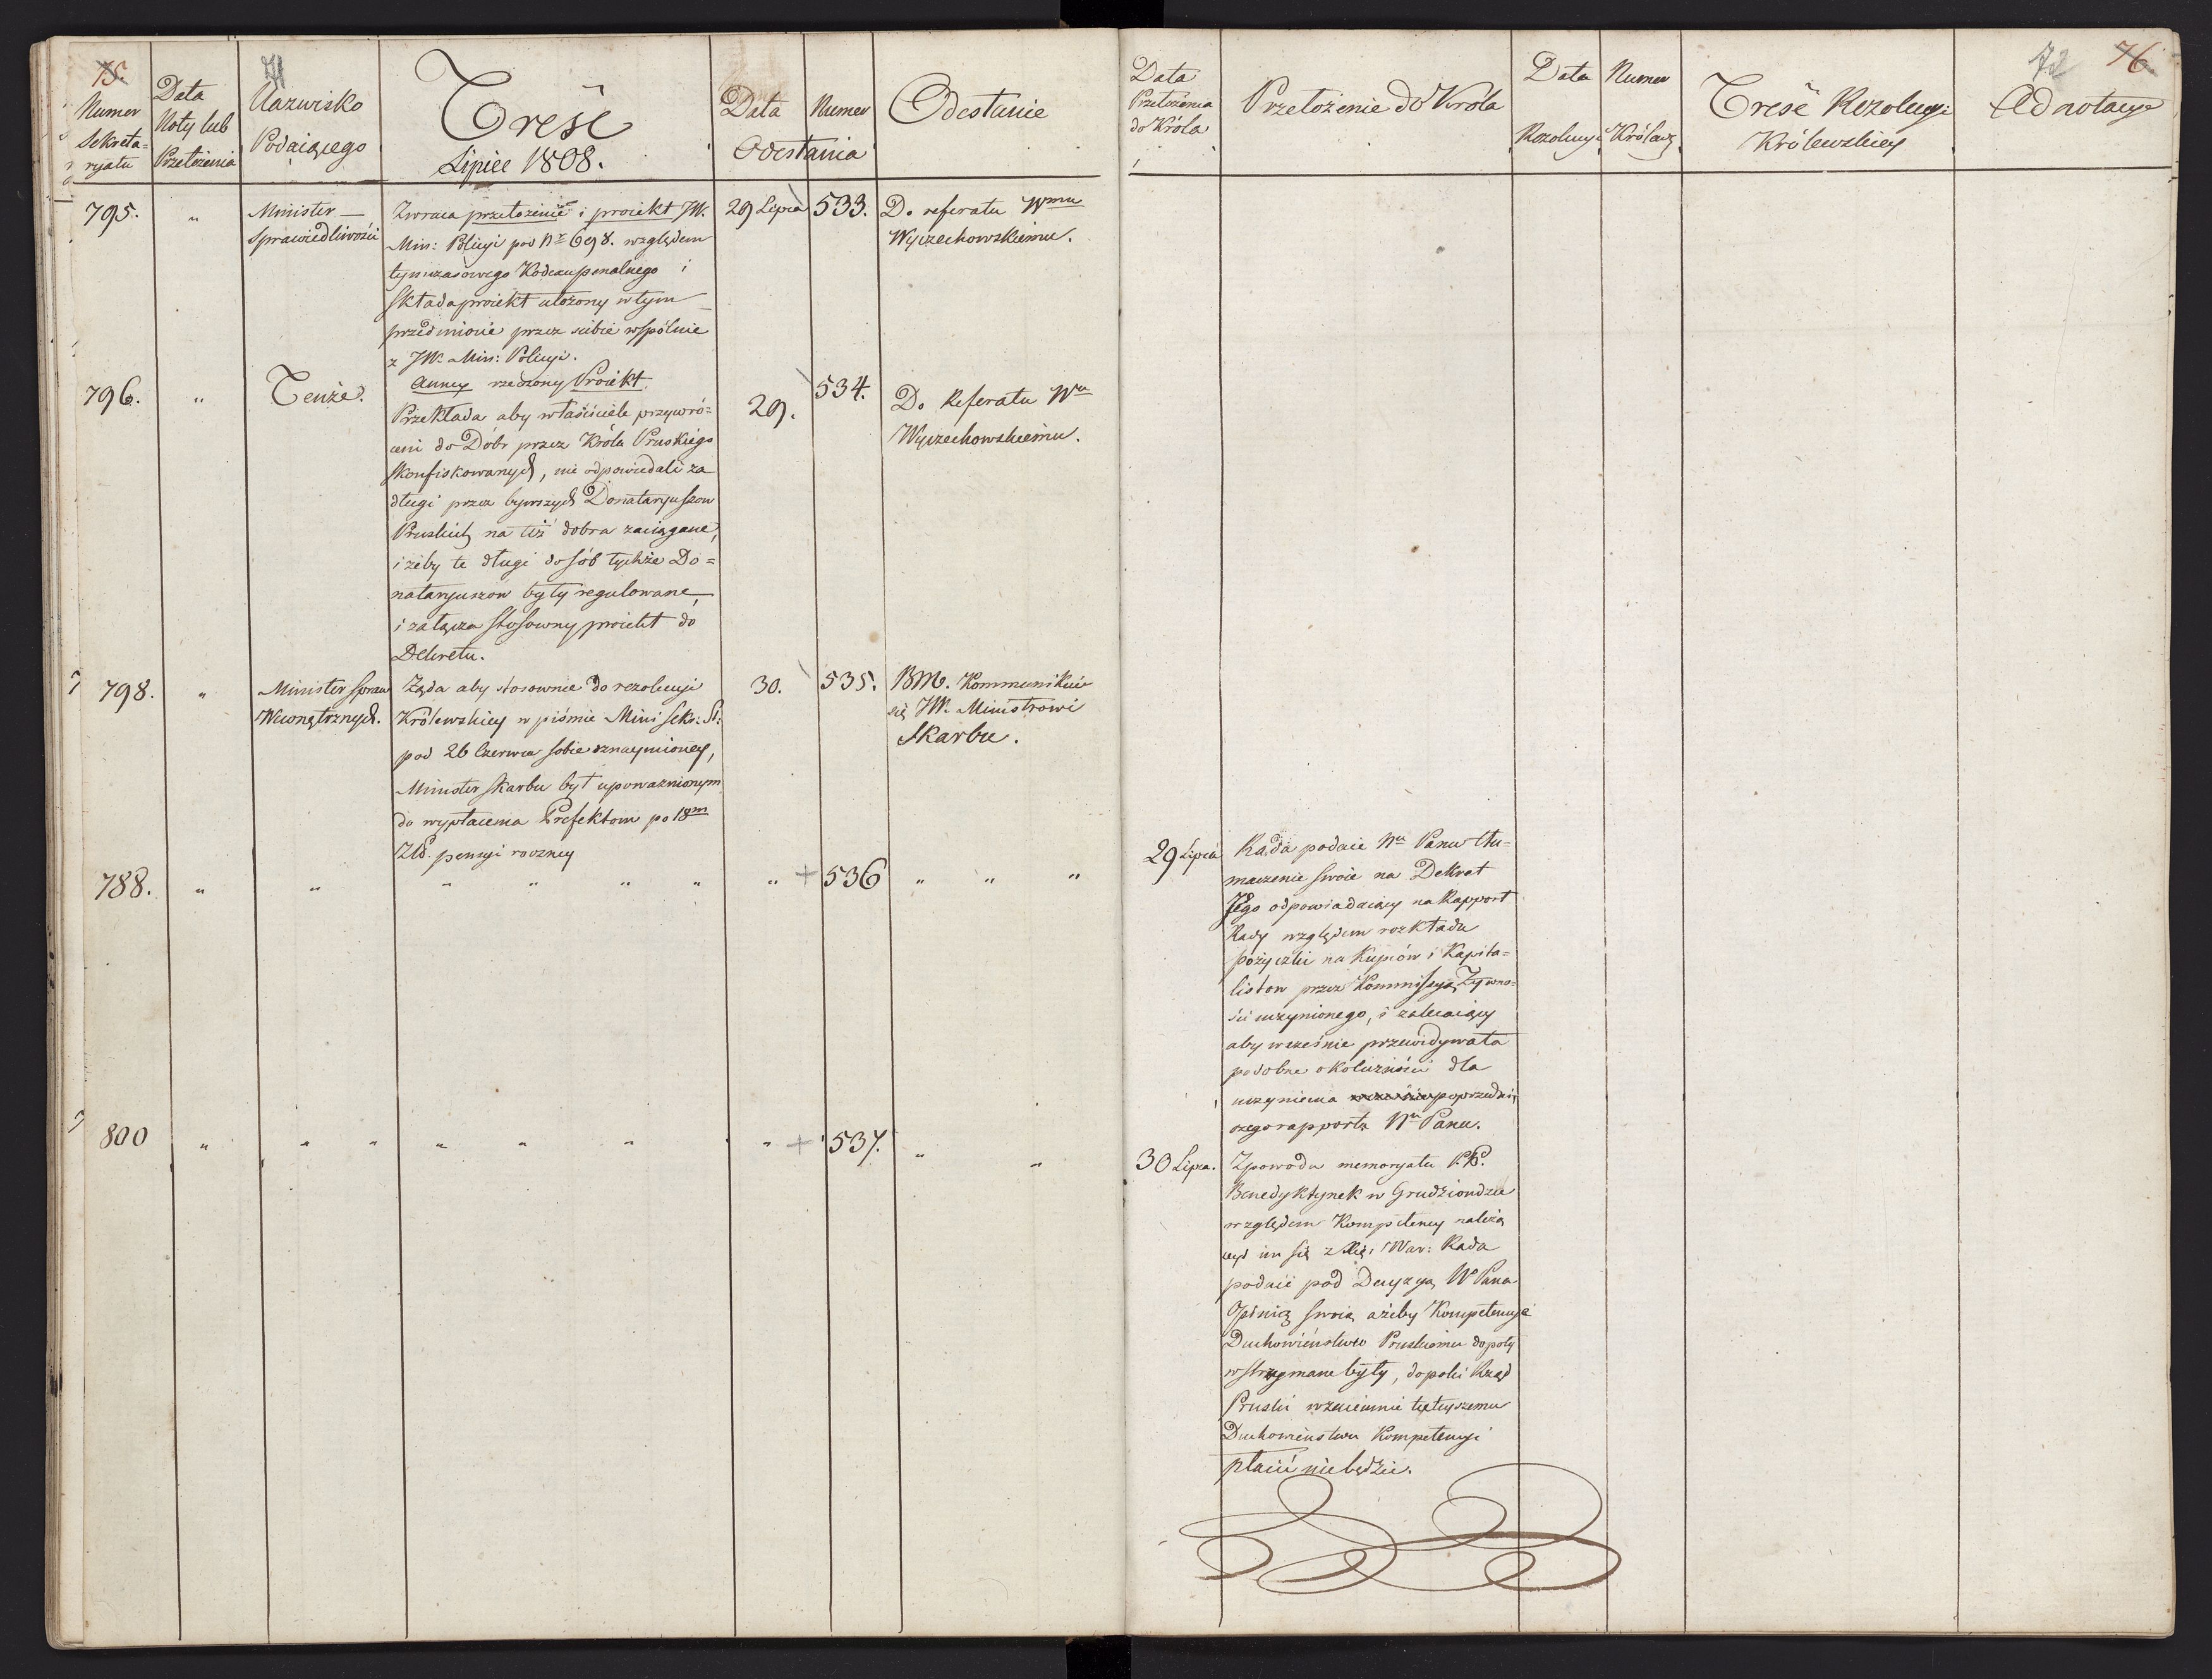 75.
71
Numer
Sekreta=
ryatu
Data
Noty lub
Przełożenia
Nazwisko
Podaiącego
Treść
Lipiec 1808.
Data
Numer
Odesłania
Odesłanie
795.
"
Minister —
Sprawiedliwości
Zwraca przełożenie i proiekt JW.
Min: Policyi pod Nr 698. względem
tymczasowego Kodexu penalnego i
składa proiekt ułożony w tym
przedmiocie przez siebie wspólnie
z JW. Min: Policyi.
Annex rzeczony Proiekt.
29 Lipca
533.
Do referatu Wmu
Wyczechowskiemu.
796.
"
Tenże.
Przekłada aby właściciele przywró=
ceni do Dóbr przez Króla Pruskiego
skonfiskowanych, nie odpowiedali za
długi przez bywszych Donataryuszow
Pruskich na też dobra zaciągane,
i żeby te długi do sób tychże Do=
nataryuszow były regulowane,
i załącza stosowny proiekt do
Dekretu.
29.
534.
Do Referatu Wu
Wyczechowskiemu.
798.
"
Minister Spraw
Wewnętrznych.
Żąda aby stosownie do rezolucyi
Królewskiey w piśmie Mini Sekr: St:
pod 26 Czerwca sobie oznaymioney,
Minister Skarbu był upoważnionym
do wypłacenia Prefektom po 18m
Złł. pensyi roczney
30.
535.
BM. Kommunikuie
się JW. Ministrowi
Skarbu.
788.
" " " " " " " + 536 " " "
800
" " " " " " " + 537. " "
72
76
Data
Przełożenia
do Króla
Przełożenie do Króla
Data
Numer
Rezolucyi Królewsk.
Treść Rezolucyi
Królewskiey
Adnotacye
29 Lipca
Rada podaie Nu Panu tłu=
maczenie swoie na Dekret
Jego odpowiadaiący na Rapport
Rady względem rozkładu
pożyczki na Kupców i Kapita=
listow przez Kommissyą Żywno=
ści uczynionego, i zalecaiący
aby wcześnie przewidywała
podobne okoliczności dla
uczynienia poprzedni=
czego rapportu Nu Panu.
30 Lipca.
Z powodu memoryału P.P.
Benedyktynek w Grudziondzu
względem Kompetency należą
cych im się z Xię: War: Rada
podaie pod Decyzyą N Pana
Opinią swoią ażeby Kompetencye
Duchowieństwu Pruskiemu dopoty
wstrzymane były, dopoki Rząd
Pruski wzaiemnie tuteyszemu
Duchowieństwu Kompetencyi
płacić nie będzie.